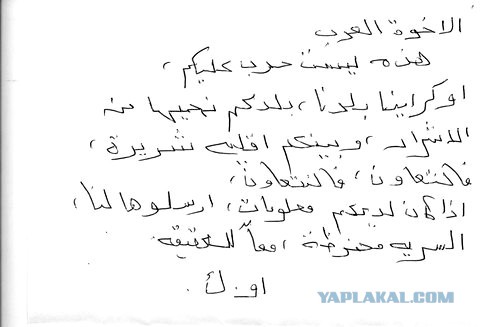 الاخوة العرب
هذه ليست حرب عليكم،
اوكراينا بلدنا، بلدكم نحييها من
الاشرار، وبينكم اقليه شريرة،
فالنتعاون، فالنتعاون،
اذا كان لديكم معلومات، ارسلوها لنا،
السريه محفوظة، معاً للحقيقه.
او. ك.
YAPLAKAL.COM